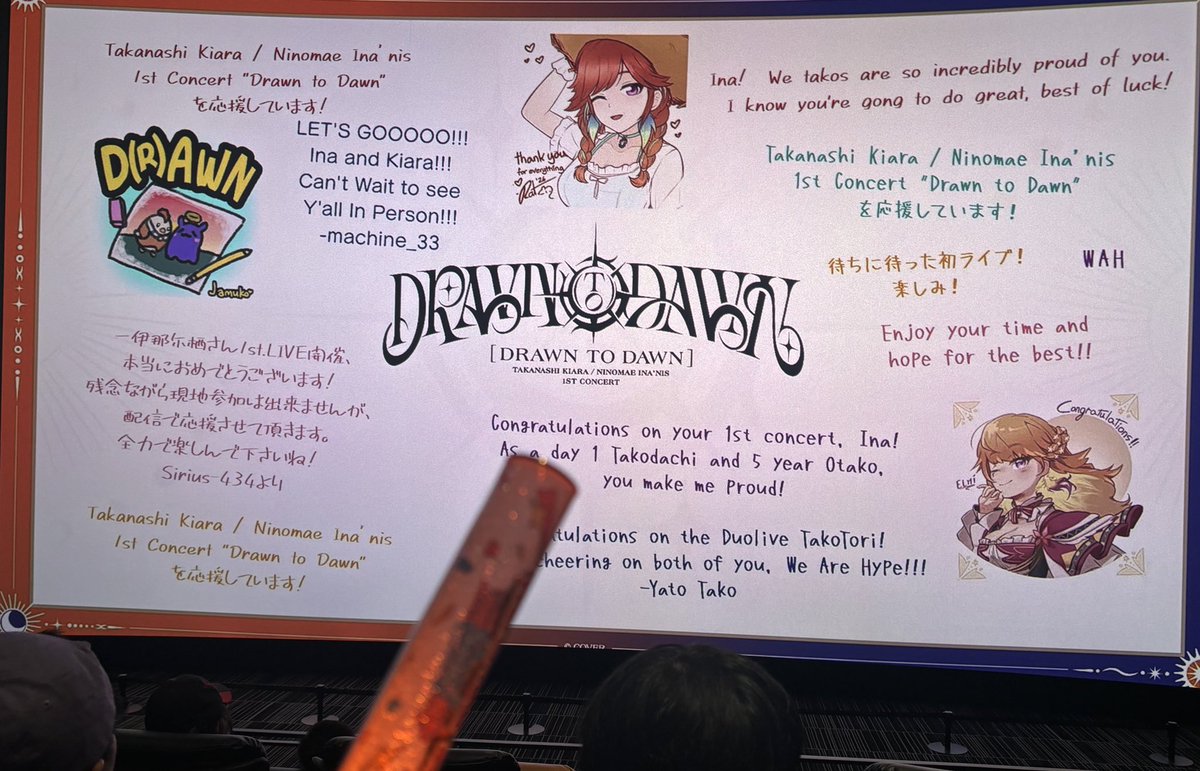 Takanashi Kiara / Ninomae Ina'nis
1st Concert "Drawn to Dawn"
を応援しています!
D(R)AWN
Jamuko
LET'S GOOOOO!!!
Ina and Kiara!!!
Can't Wait to see
Y'all In Person!!!
-machine_33
thank you
for everything
Ina! We takos are so incredibly proud of you.
I know you're gong to do great, best of luck!
Takanashi Kiara / Ninomae Ina'nis
1st Concert "Drawn to Dawn"
を応援しています!
待ちに待った初ライブ!
楽しみ!
WAH
Enjoy your time and
hope for the best!!
DRAWN TO DAWN
[DRAWN TO DAWN]
TAKANASHI KIARA / NINOMAE INA'NIS
1ST CONCERT
一伊那尓栖さん1st.LIVE開催、
本当におめでとうございます!
残念ながら現地参加は出来ませんが、
配信で応援させて頂きます。
全力で楽しんで下さいね!
Sirius-434より
Takanashi Kiara / Ninomae Ina'nis
1st Concert "Drawn to Dawn"
を応援しています!
Congratulations on your 1st concert, Ina!
As a day 1 Takodachi and 5 year Otako,
you make me Proud!
tulations on the Duolive TakoTori!
cheering on both of you. We Are HyPe!!!
-Yato Tako
Congratulations!!
© COVER